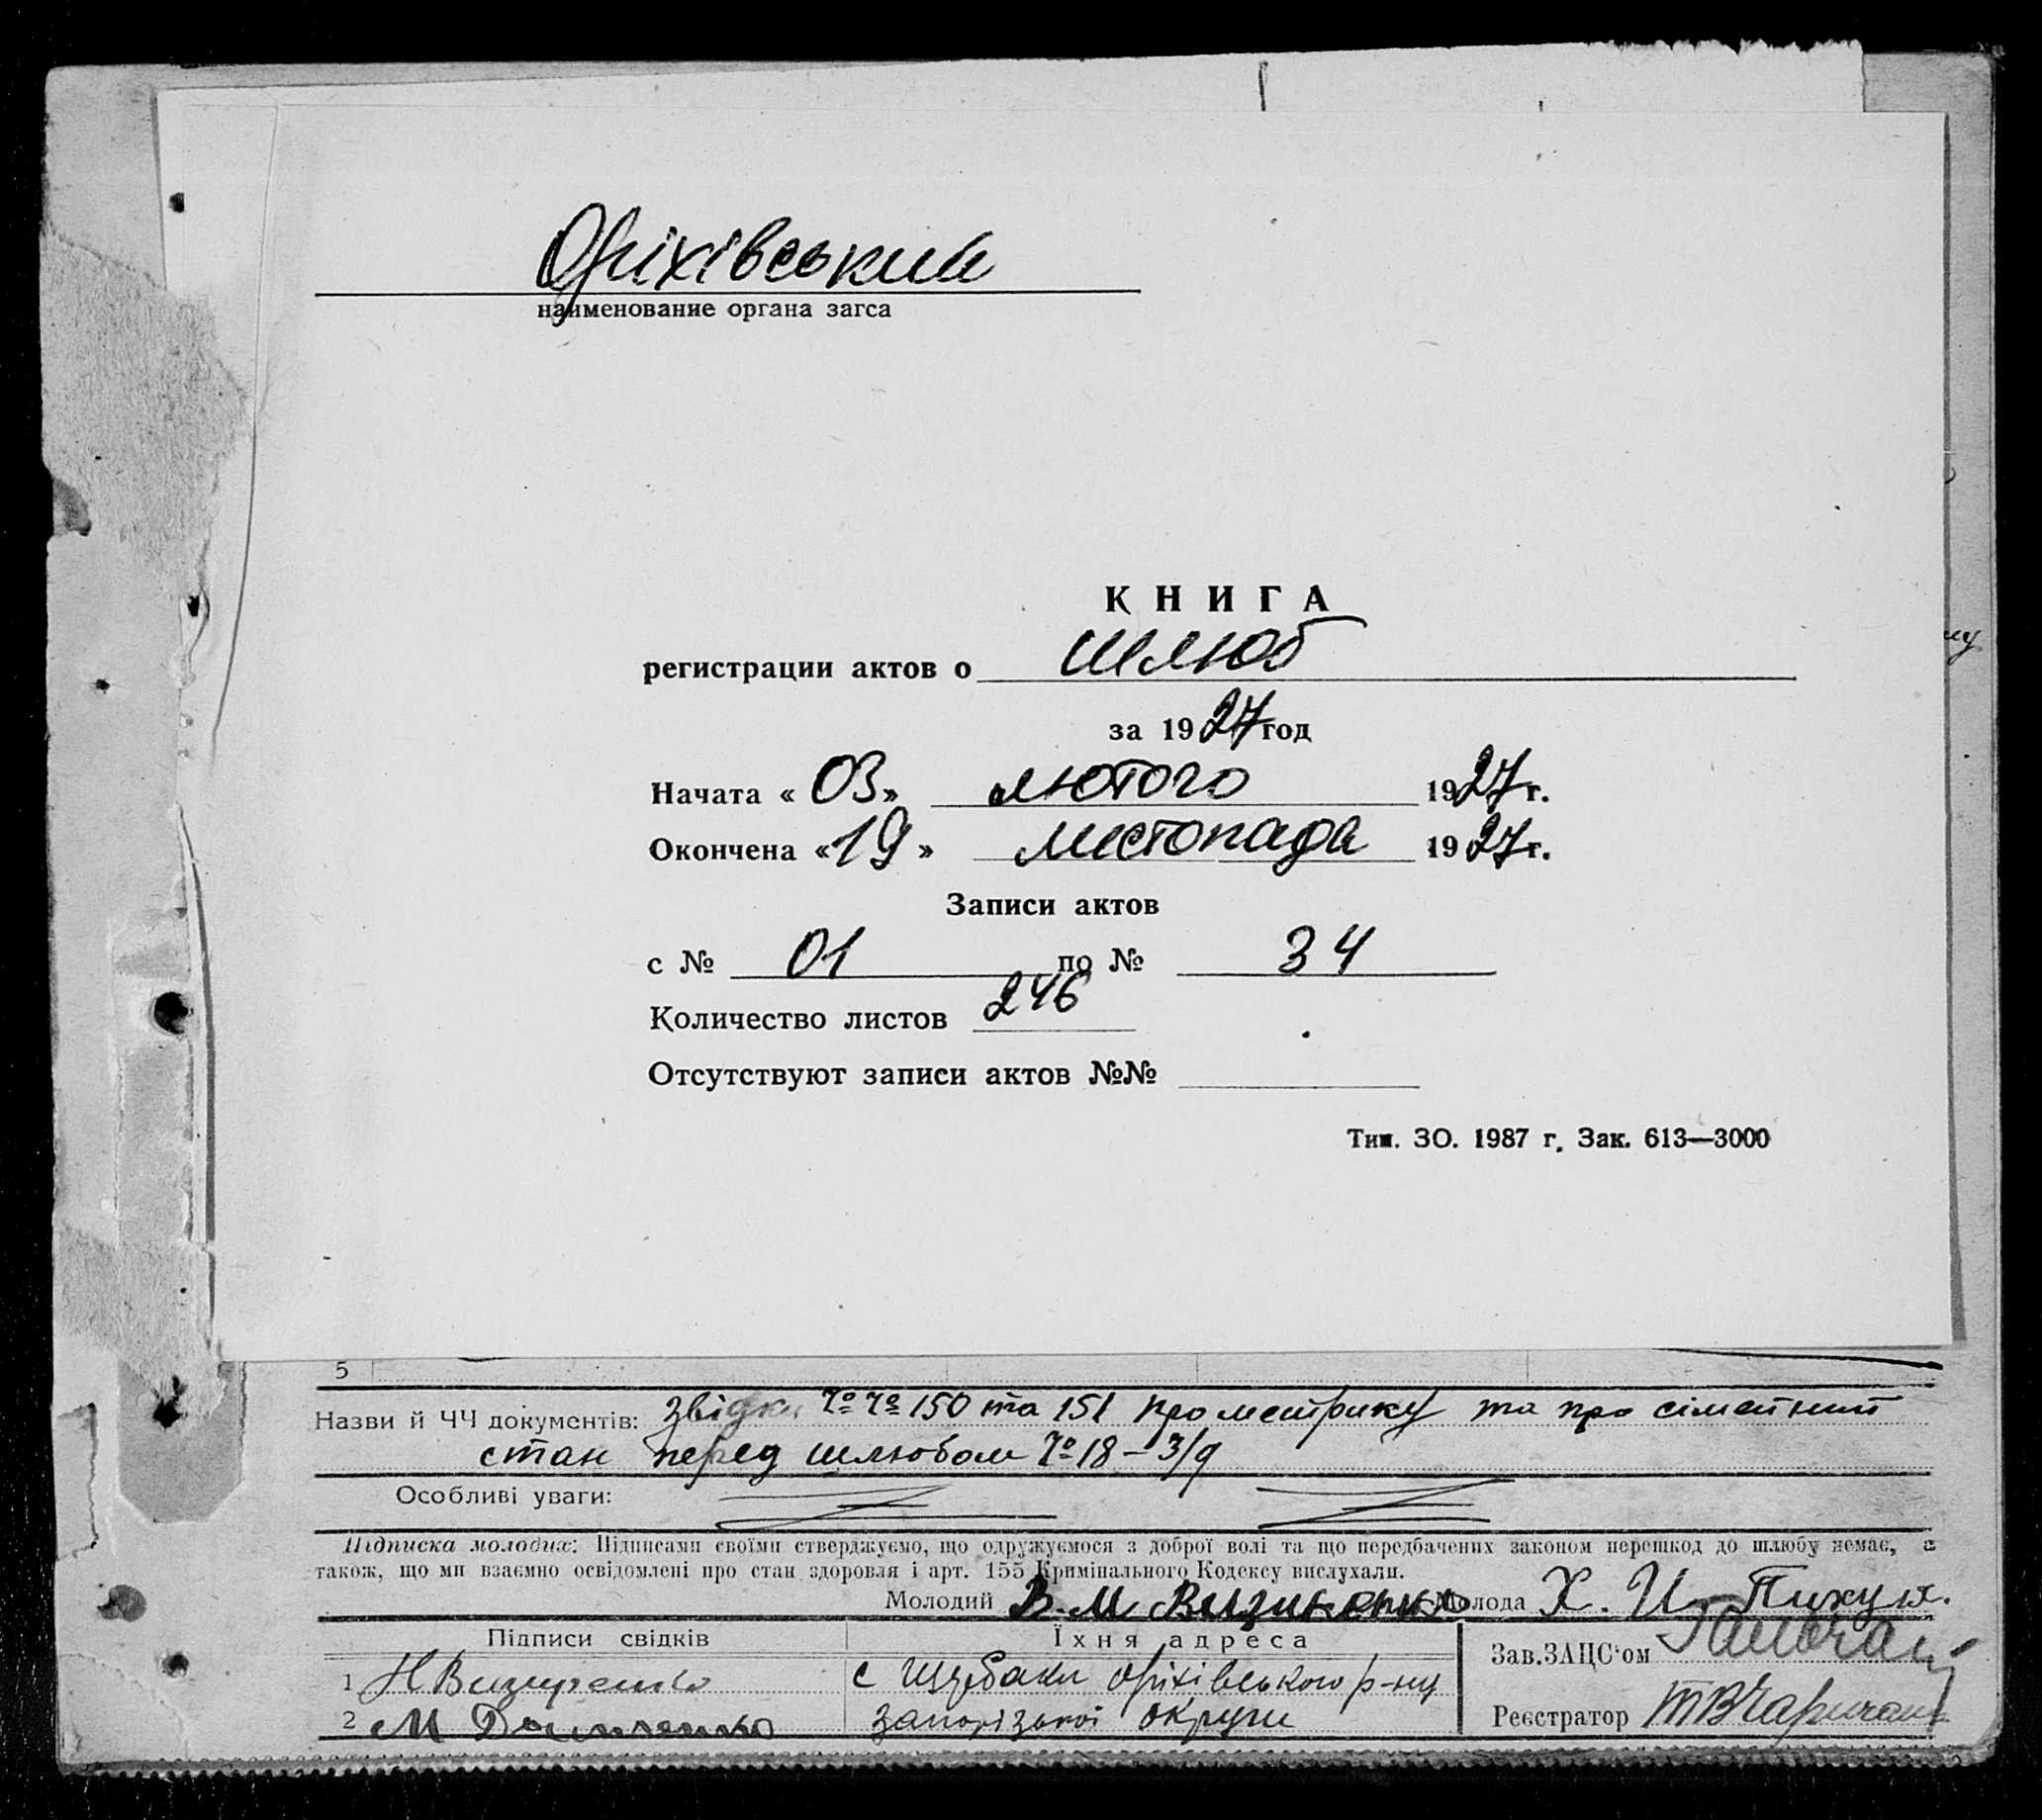 Оріхівський
наименование органа загса
КНИГА
регистрации актов о шлюб
за 1927 год
Начата « 03 » лютого 1927 г.
Окончена « 19 » листопада 1927 г.
Записи актов
с № 01 по № 34
Количество листов 246
Отсутствуют записи актов №№
Тип. ЗО. 1987 г. Зак. 613—3000
5
Назви й ЧЧ документів: Звідки Ч°Ч° 150 та 151 про метрику та про сімейний
стан перед шлюбом Ч° 18 – 3/д
Особливі уваги:
Підписка молодих: Підписами своїми стверджуємо, що одружуємося з доброї волі та що передбачених законом перешкод до шлюбу немає, а
також, що ми взаємно освідомлені про стан здоровля і арт. 155 Кримінального Кодексу вислухали.
Молодий В. М Молода Х. И.
Підписи свідків Їхня адреса Зав.ЗАЦС‘ом
1 с Щербаки Оріхівського р-ну
2 М запорізької округи Реєстратор